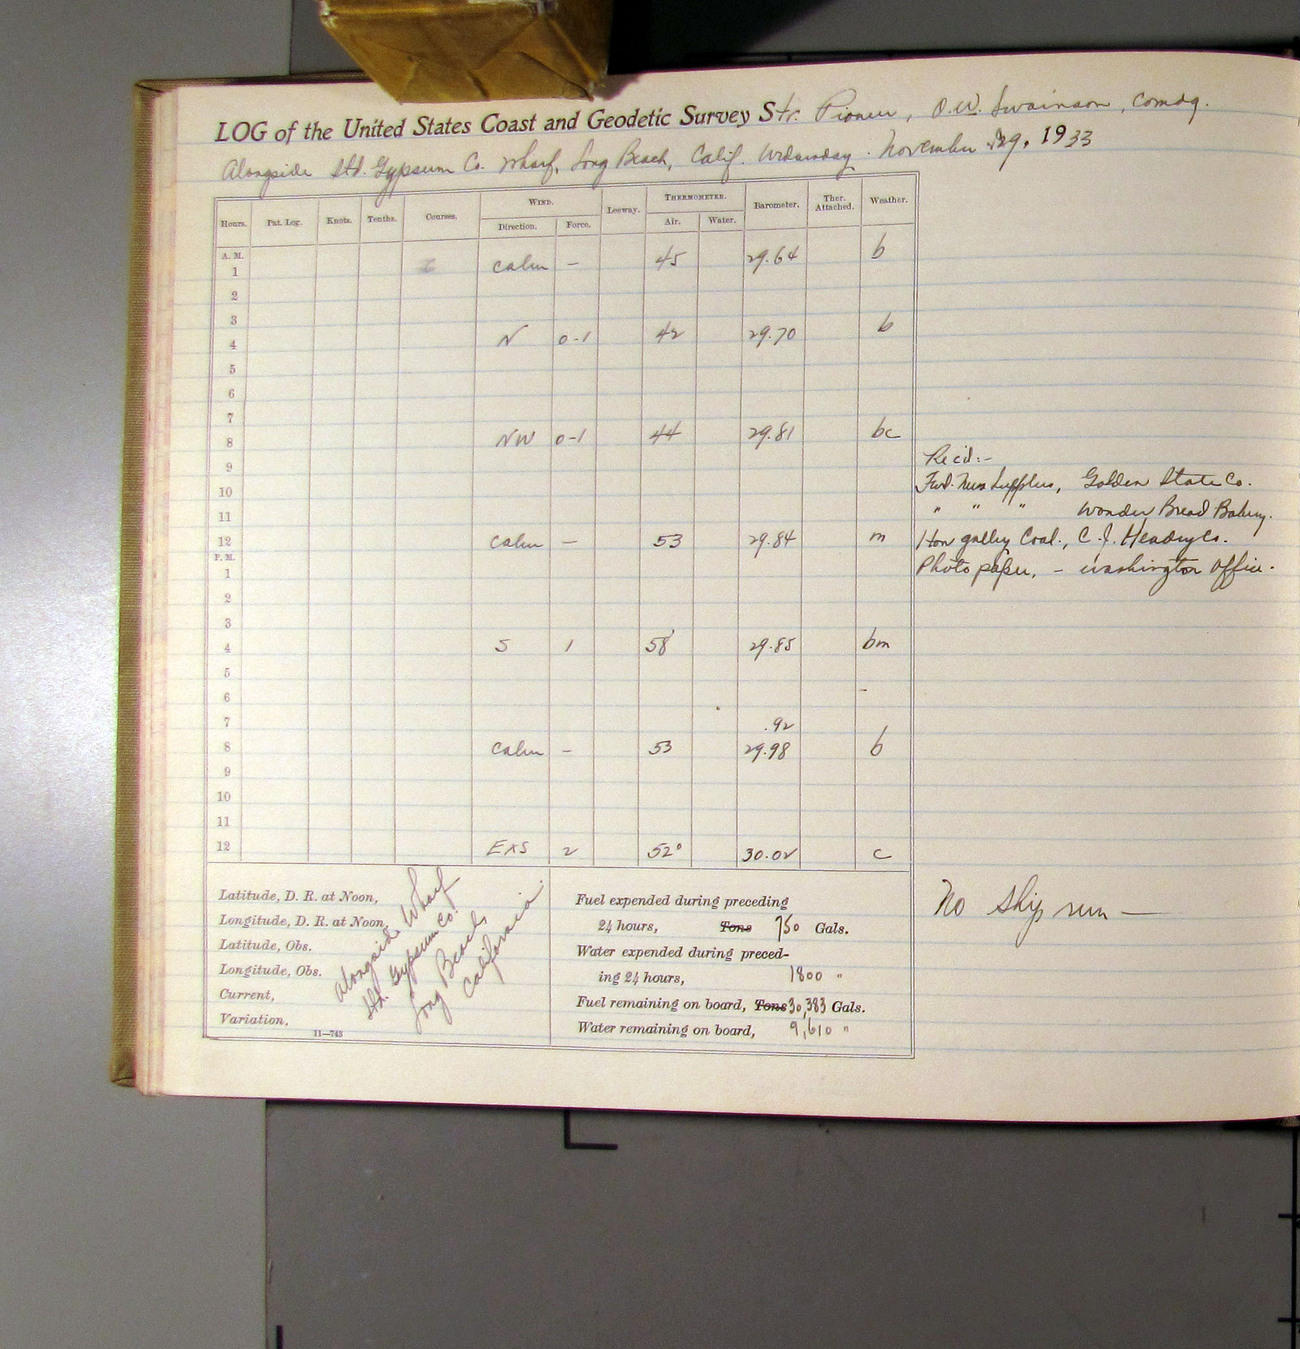 LOG of the United States Coast and Geodetic Survey Str. Pioneer, O.W. Swainson, Comdg.
Alongside Std. Gypsum Co. Wharf, Long Beach, Calif. Wednesday. November 29, 1933
Hours. Pat. Log. Knots. Tenths. Courses. WIND. Leeway. THERMOMETER. Barometer. Ther. Attached. Weather.
Direction. Force. Air. Water.
A. M.
1 calm – 45 29.64 b
2
3
4 N 0-1 42 29.70 b
5
6
7
8 NW 0-1 44 29.81 bc
Rec'd:-
9
10 Supplies, Golden State Co.
11 " " " Wonder Bread Bakery.
12 calm – 53 29.84 m galley Coal., Co.
P. M.
1 Photo paper, – Washington Office.
2
3
4 S 1 58 29.85 bm
5
6 -
7 .92
8 calm – 53 29.98 b
9
10
11
12 ExS 2 52° 30.02 c
Latitude, D. R. at Noon,
Longitude, D. R. at Noon,
Latitude, Obs.
Longitude, Obs.
Current,
Variation,
11—743
Alongside Wharf
Std. Gypsum Co.
Long Beach
California.
Fuel expended during preceding
24 hours, Tons 750 Gals.
Water expended during preced-
ing 24 hours, 1800 "
Fuel remaining on board, Tons 30,383 Gals.
Water remaining on board, 9,610 "
No ship run —